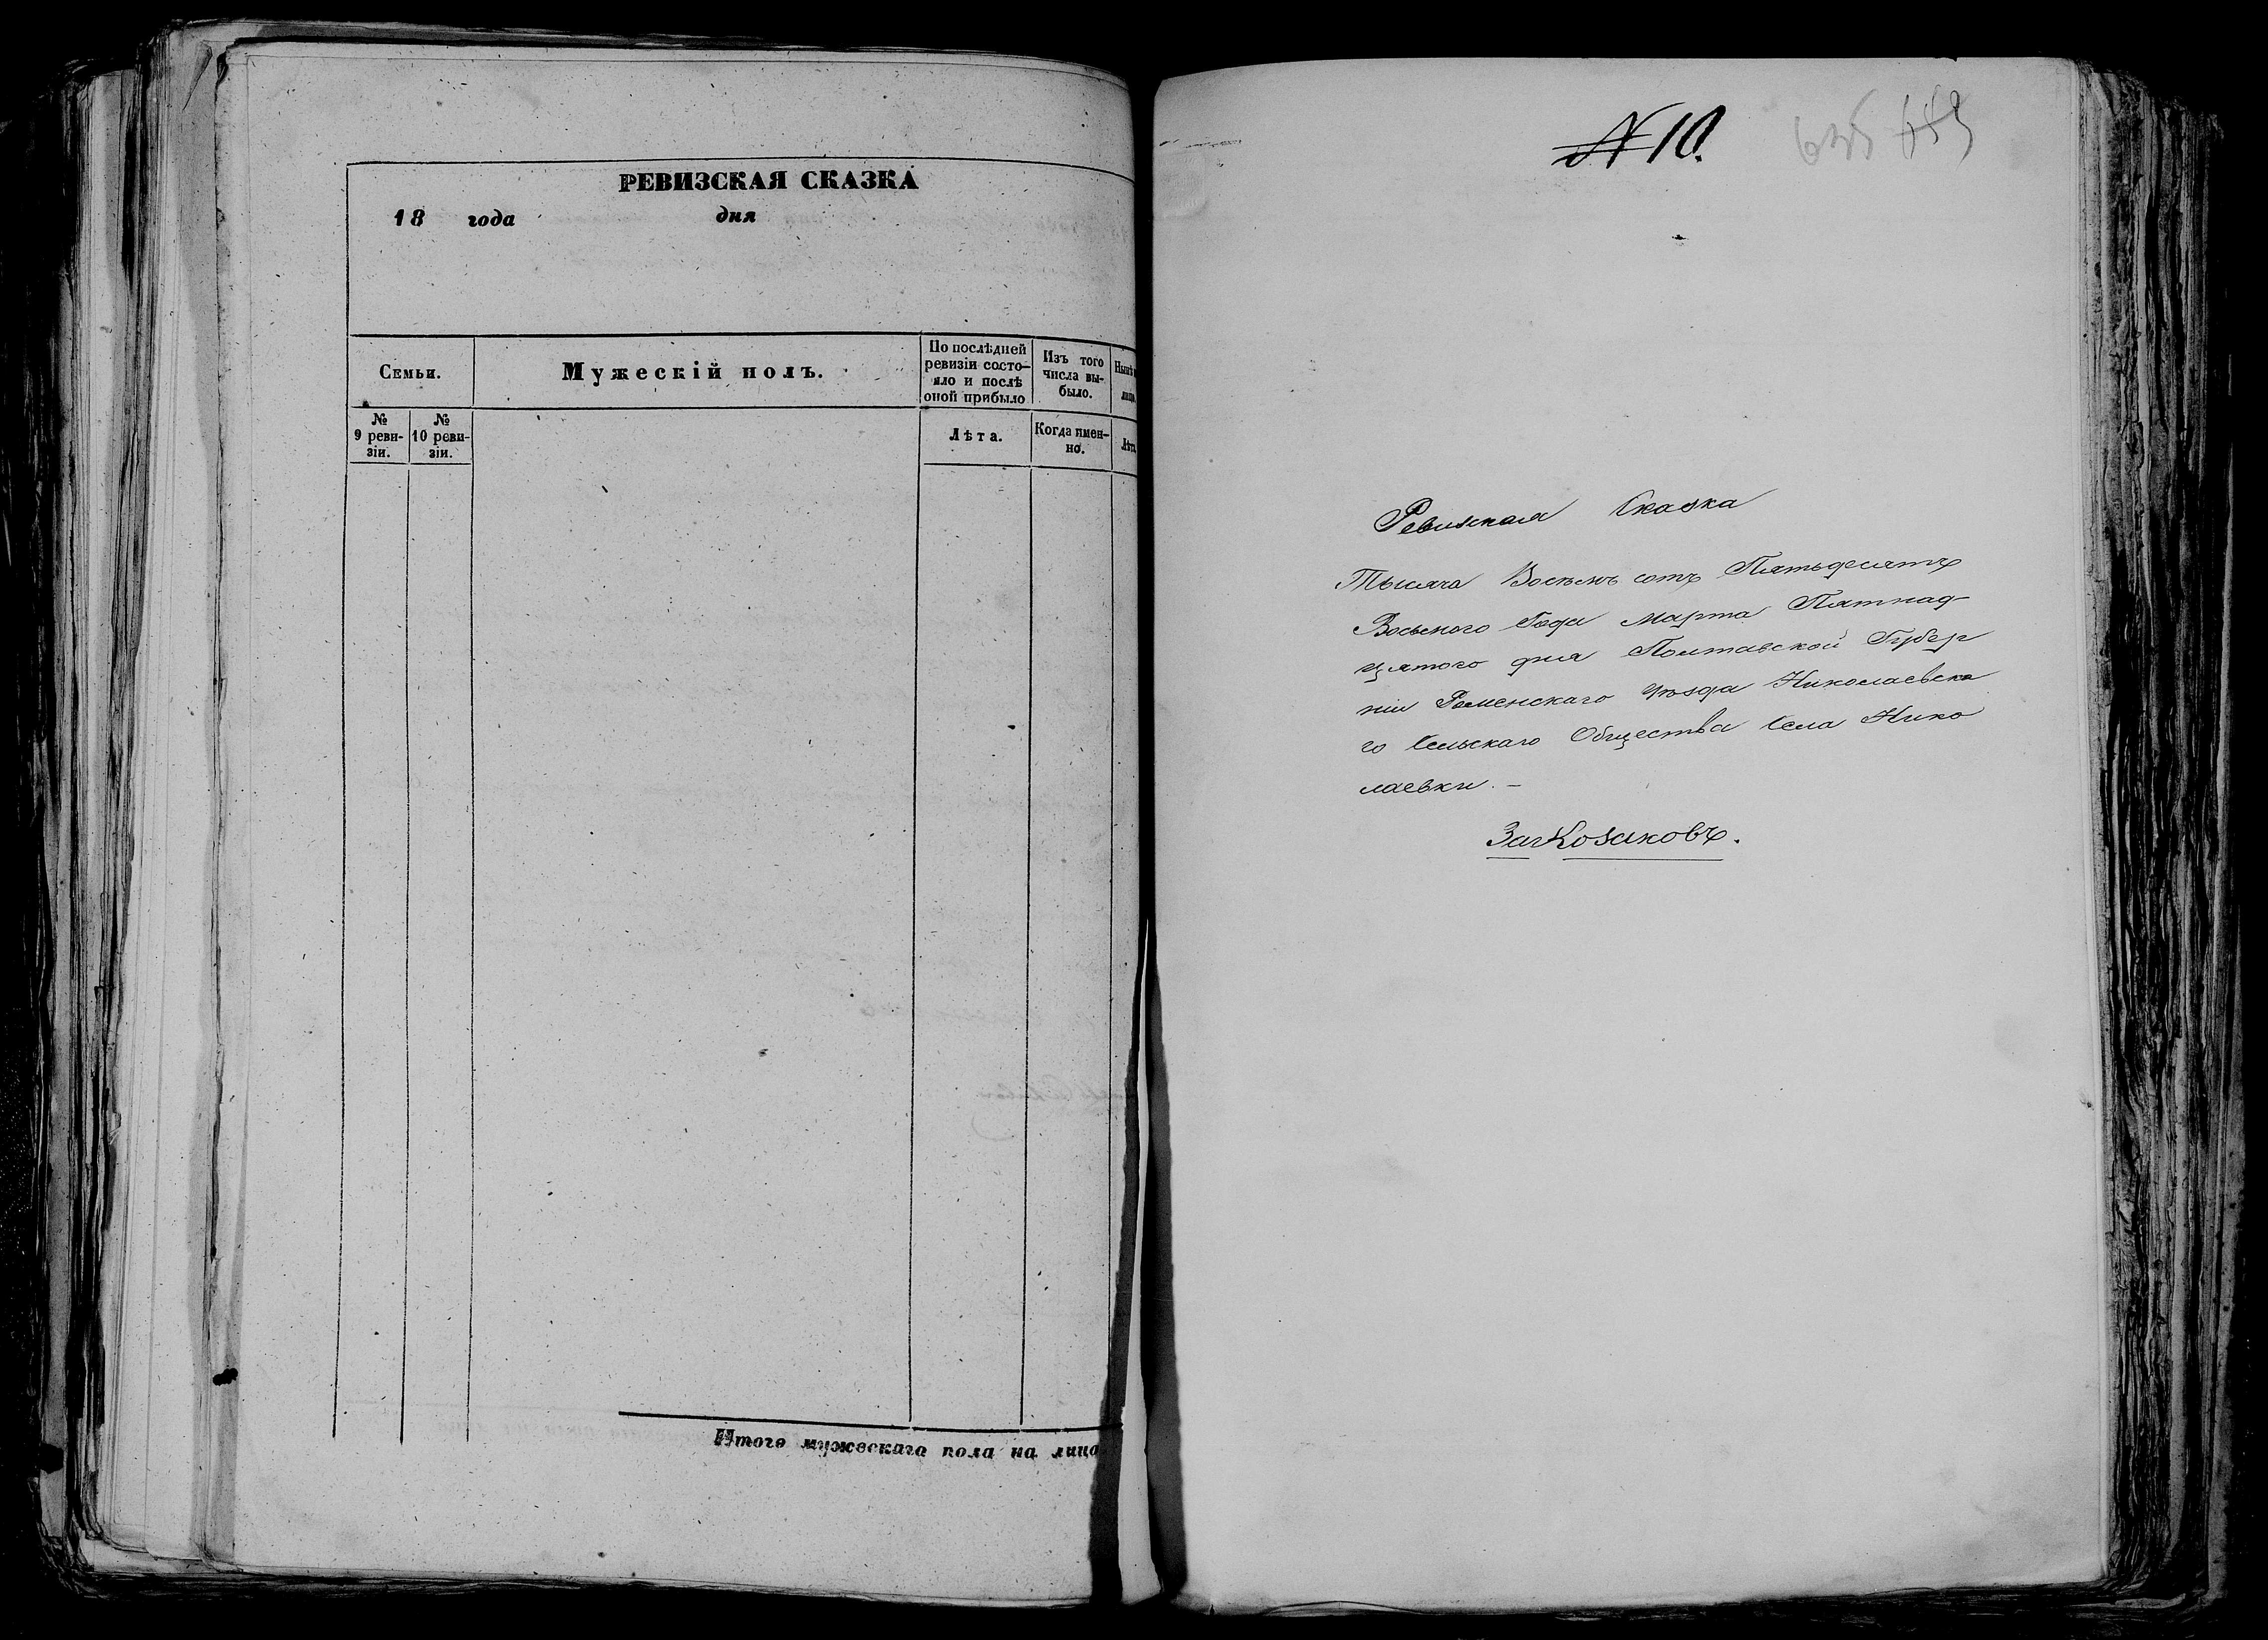 РЕВИЗСКАЯ СКАЗКА
18 года дня
Семьи.
Мужескій полъ.
По послѣдней
ревизіи состо-
яло и послѣ
оной прибыло
Изъ того
числа вы-
было.
№
9 реви-
зіи.
№
10 реви-
зіи.
Лѣта.
Когда имен-
но.
Итого мужескаго пола на лицо
№ 10.
Ревизская Сказка
Тысяча Восемь сотъ Пятьдесятъ
Восьмого Года Марта Пятнад-
цятого дня Полтавской Губер
ніи Роменскаго Уѣзда Николаевска
го Сельскаго Общества Села Нико
лаевки. –
За Козаковъ.